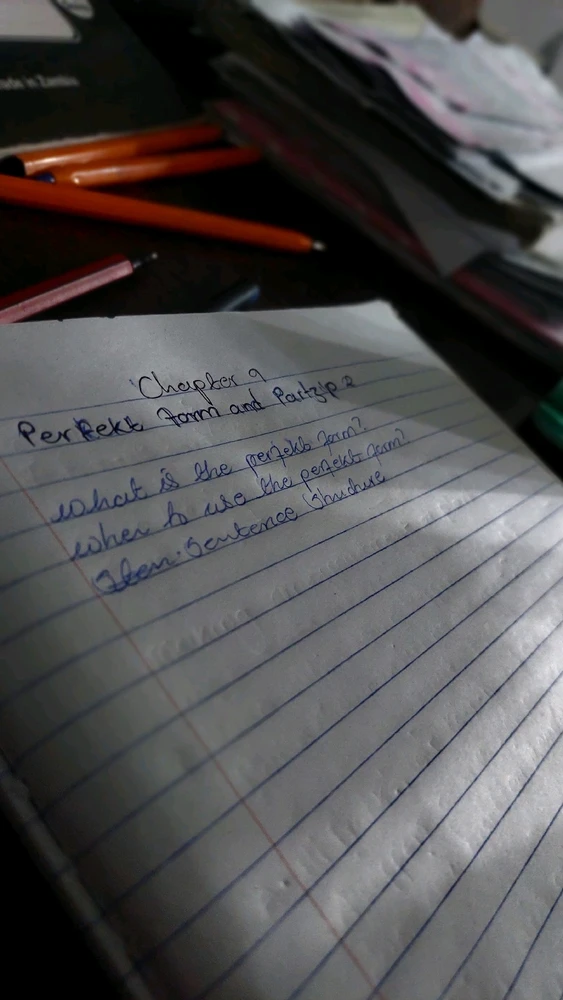 made in Zambia
Chapter 9
Perfekt form and Partizip 2
what is the perfekt form?
when to use the perfekt form?
Sentence Structure